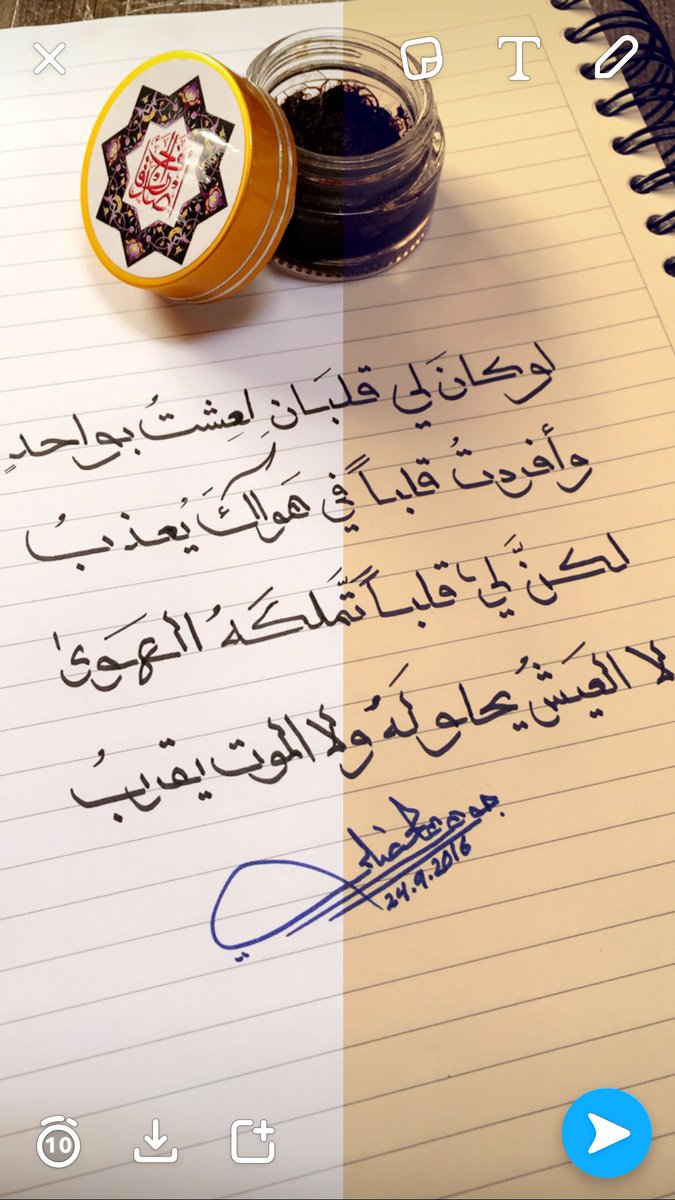 T
لو كانَ لي قلبَانِ لعِشتُ بواحدٍ
وأفردتُ قلباً في هَواكَ يُعذبُ
لكنَّ لي قلباً تَّملكَهُ الهَوىٰ
لا العَيشُ يحلو لَهُ ولا الموت يقربُ
24.9.2016
10